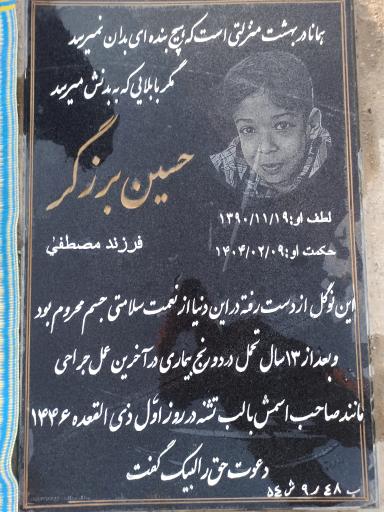 همانا در بهشت منزلتی است که هیچ بنده ای بدان نمیرسد
مگر با بلایی که به بدنش میرسد
حسین برزگر
لطف او: ۱۳۹۰/۱۱/۱۹
فرزند مصطفی
حکمت او: ۱۴۰۴/۰۲/۰۹
این نوگل از دست رفته در این دنیا از نعمت سلامتی جسم محروم بود
و بعد از ۱۳ سال تحمل درد و رنج بیماری در آخرین عمل جراحی
مانند صاحب اسمش با لب تشنه در روز اول ذی القعده ۱۴۴۶
دعوت حق را لبیک گفت
ب ۴۸ ر ۹ ش ۵۴